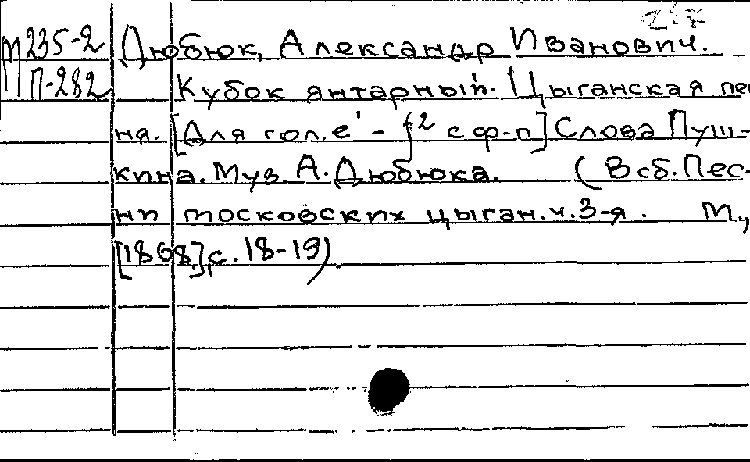 М 235-2 Дюбюк, Александр Иванович.
П-282 Кубок янтарный. Цыганская пес
ня. [Для гол. e' - f² с ф-п] Слова Пуш-
кина. Муз. А. Дюбюка. (В сб. Пес-
ни московских цыган. ч. 3-я. М.,
[1868], с. 18-19).